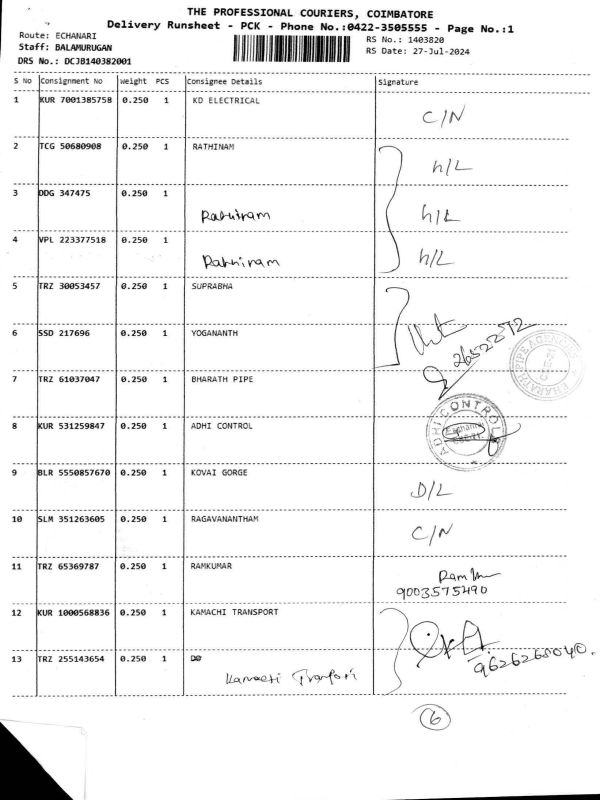 THE PROFESSIONAL COURIERS, COIMBATORE
Delivery Runsheet - PCK - Phone No.:0422-3505555 - Page No.:1
Route: ECHANARI
RS No.: 1403820
Staff: BALAMURUGAN
RS Date: 27-Jul-2024
DRS No.: DCJB140382001
S No Consignment No Weight PCS Consignee Details Signature
1 KUR 7001385758 0.250 1 KD ELECTRICAL
C/N
2 TCG 50680908 0.250 1 RATHINAM
h/L
3 DDG 347475 0.250 1
Rathinam h/L
4 VPL 223377518 0.250 1
Rathinam h/L
5 TRZ 30053457 0.250 1 SUPRABHA
6 SSD 217696 0.250 1 YOGANANTH
2652272
BHARATH PIPE AGENCIES
7 TRZ 61037047 0.250 1 BHARATH PIPE
8 KUR 531259847 0.250 1 ADHI CONTROL
ADHI CONTROLS
Echanari
9 BLR 5550857670 0.250 1 KOVAI GORGE
D/L
10 SLM 351263605 0.250 1 RAGAVANANTHAM
C/N
11 TRZ 65369787 0.250 1 RAMKUMAR
9003575490
12 KUR 1000568836 0.250 1 KAMACHI TRANSPORT
9626268040.
13 TRZ 255143654 0.250 1 DO
6